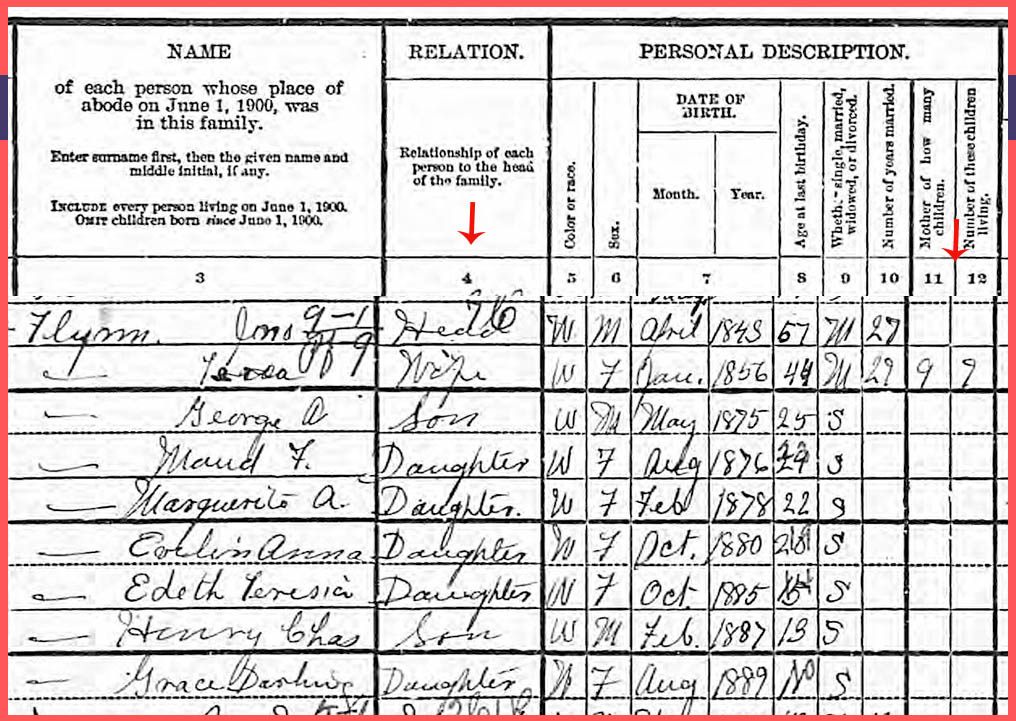 NAME
of each person whose place of
abode on June 1, 1900, was
in this family.
Enter surname first, then the given name and
middle initial, if any.
INCLUDE every person living on June 1, 1900.
OMIT children born since June 1, 1900.
RELATION.
Relationship of each
person to the head
of the family.
PERSONAL DESCRIPTION.
Color or race.
Sex.
DATE OF
BIRTH.
Month.
Year.
Age at last birthday.
Whether single, married,
widowed, or divorced.
Number of years married.
Mother of how many
children.
Number of these children
living.
3 4 5 6 7 8 9 10 11 12
Flynn. Jno 9-1 Head W M April 1843 57 M 27
Wife W F Jan. 1856 44 M 27 9 9
George A Son W M May 1875 25 S
Maud F. Daughter W F Aug 1876 S
Marguerite A. Daughter. W F Feb 1878 22 S
Evelin Anna Daughter W F Oct. 1880 S
Edeth Teresia Daughter W F Oct. 1885 S
Henry Chas Son W M Feb. 1887 13 S
Grace Darling Daughter W F Aug 1889 10 S